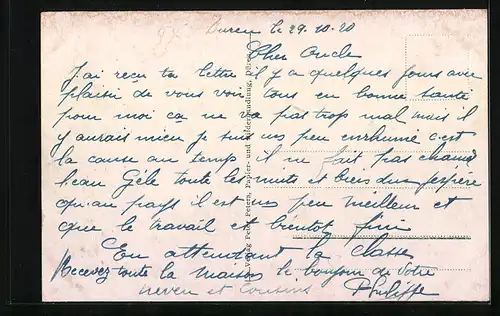 Duren le 29.10.20
Cher Oncle
J'ai reçu ta lettre il y a quelques jours avec
plaisir de vous voir tous en bonne santé
pour moi ca ne va pas trop mal mais il
y aurais mieu je suis un peu enrhumé c'est
la cause au temps il ne fait pas chaud
l'eau Gèle toute les nuits et bien dur j'espère
qu'au pays il est un peu meilleur et
que le travail est bientot fini
En attendant la classe
Recevez toute la maison le bonjour de votre
neveu et Cousins Philippe
Verlag Peter Peters, Papier- und Bilderhandlung, Düren